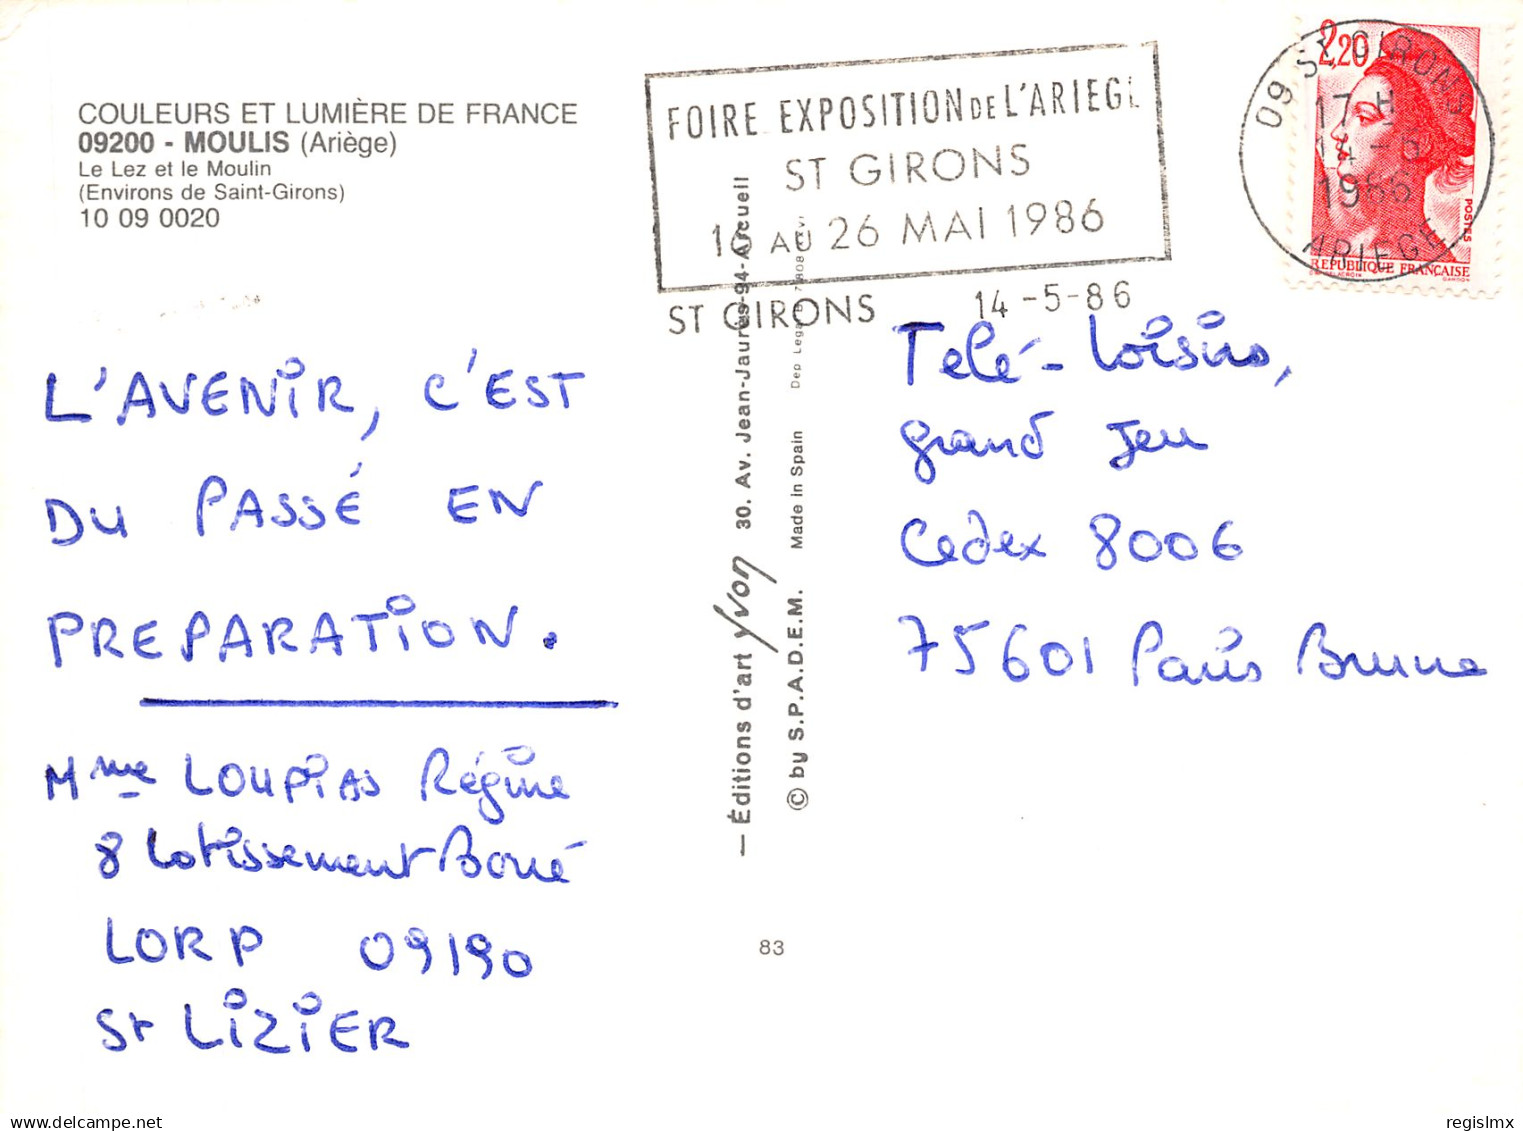 COULEURS ET LUMIÈRE DE FRANCE
09200 - MOULIS (Ariège)
Le Lez et le Moulin
(Environs de Saint-Girons)
10 09 0020
FOIRE EXPOSITION DE L'ARIEGE
ST GIRONS
AU 26 MAI 1986
ST GIRONS 14-5-86
2,20
POSTES
RÉPUBLIQUE FRANÇAISE
09 ST GIRONS
17 H
14-5
1986
ARIEGE
L'AVENIR, C'EST
DU PASSÉ EN
PREPARATION.
Mme LOUPIAS Régine
8 Lotissement Boué
LORP 09190
St LIZIER
— Éditions d'art yvon 30. Av. Jean-Jaurès-94-Arcueil
© by S.P.A.D.E.M. Made in Spain Dep Legal
83
Telé-Loisirs,
grand Jeu
Cedex 8006
75601 Paris Brune
regislmx